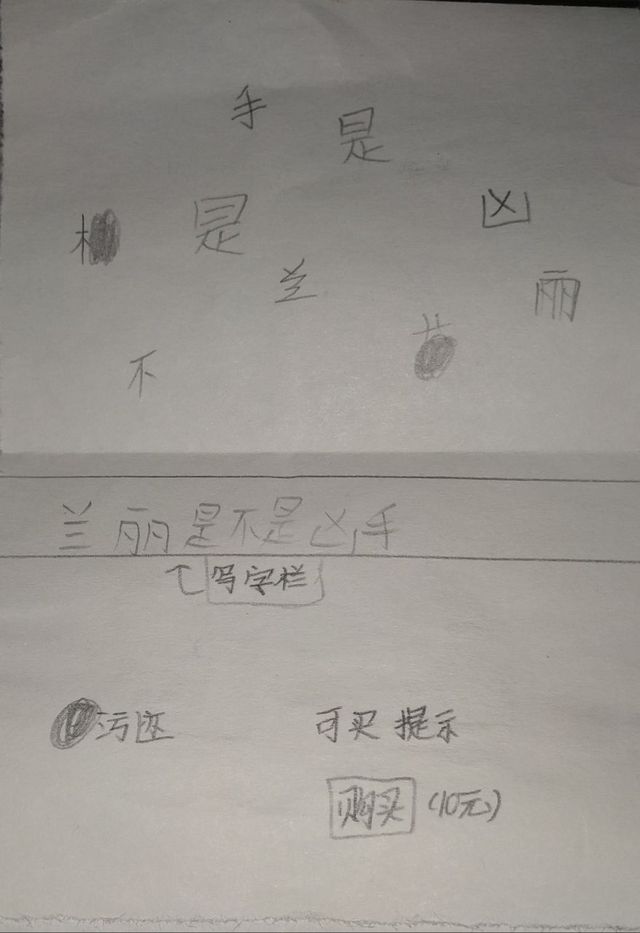 手
是
是
凶
兰
丽
不
兰丽是不是凶手
写字栏
污迹
可买 提示
购买 (10元)